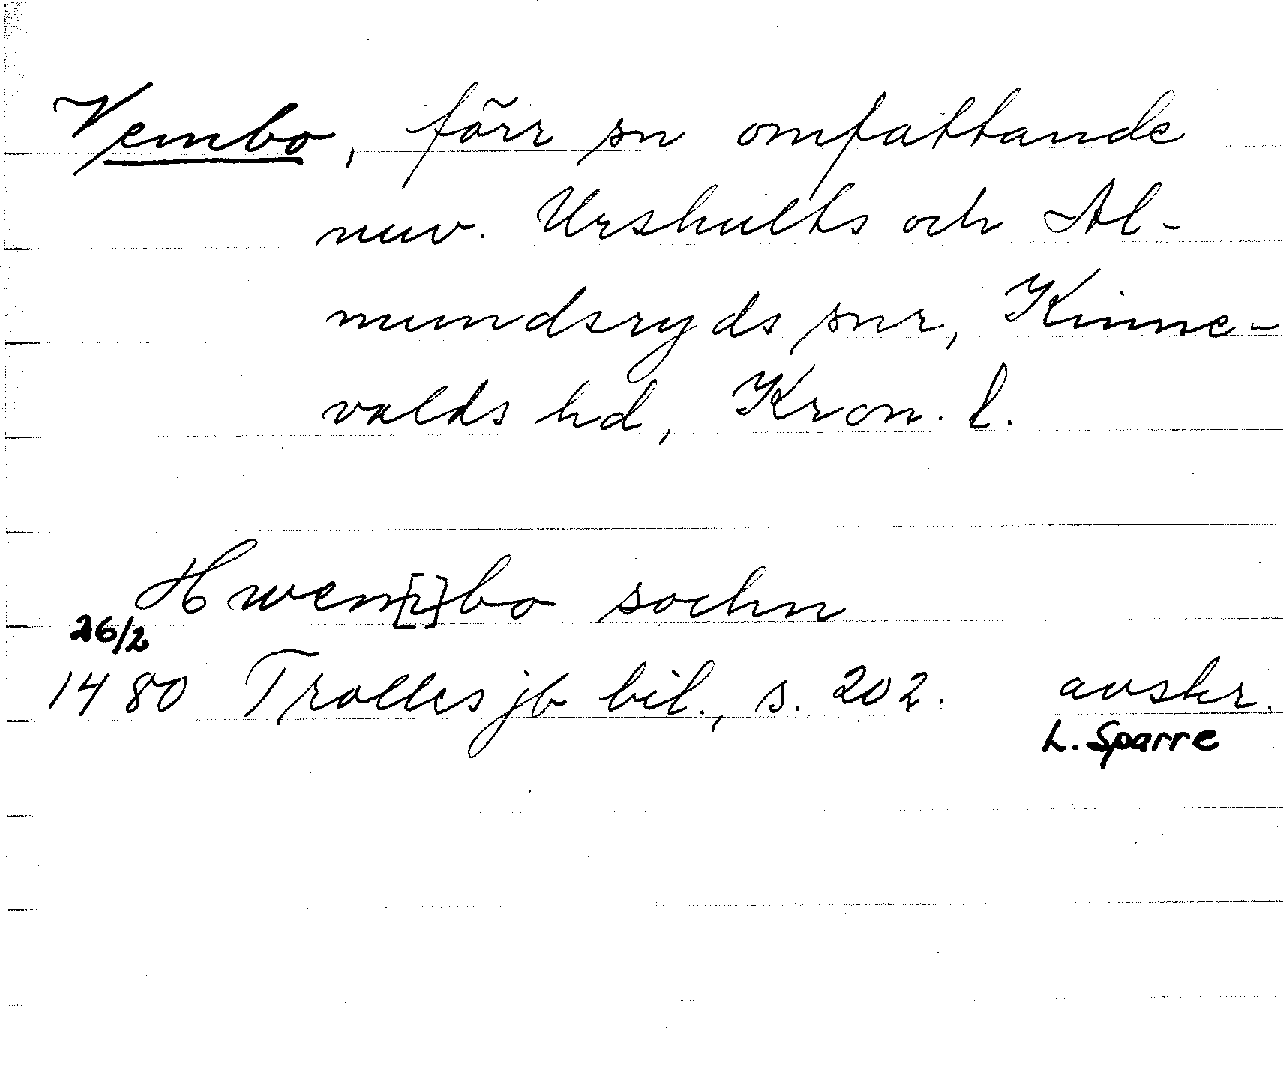 Vembo, förr sn omfattande
nuv. Urshults och Al-
mundsryds snr, Kinne-
valds hd, Kron. l.
Hwem[i]bo sochn
26/2
1480 Trolles jb bil., s. 202. avskr.
L. Sparre